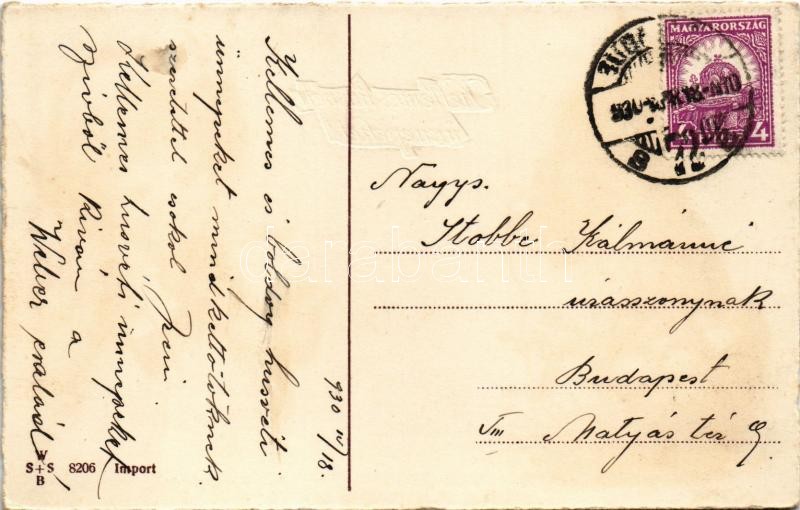 930 IV/18.
Kellemes és boldog husvéti
ünnepeket mindkettőtöknek
szeretettel csókol
Kellemes husvéti ünnepeket
szívből kíván a
Weber család
MAGYARORSZÁG
4 4
Nagys.
Stobbe Kálmánné
úrasszonynak
Budapest
VIII Mátyás tér 9.
darabanth
W
S+S 8206 Import
B